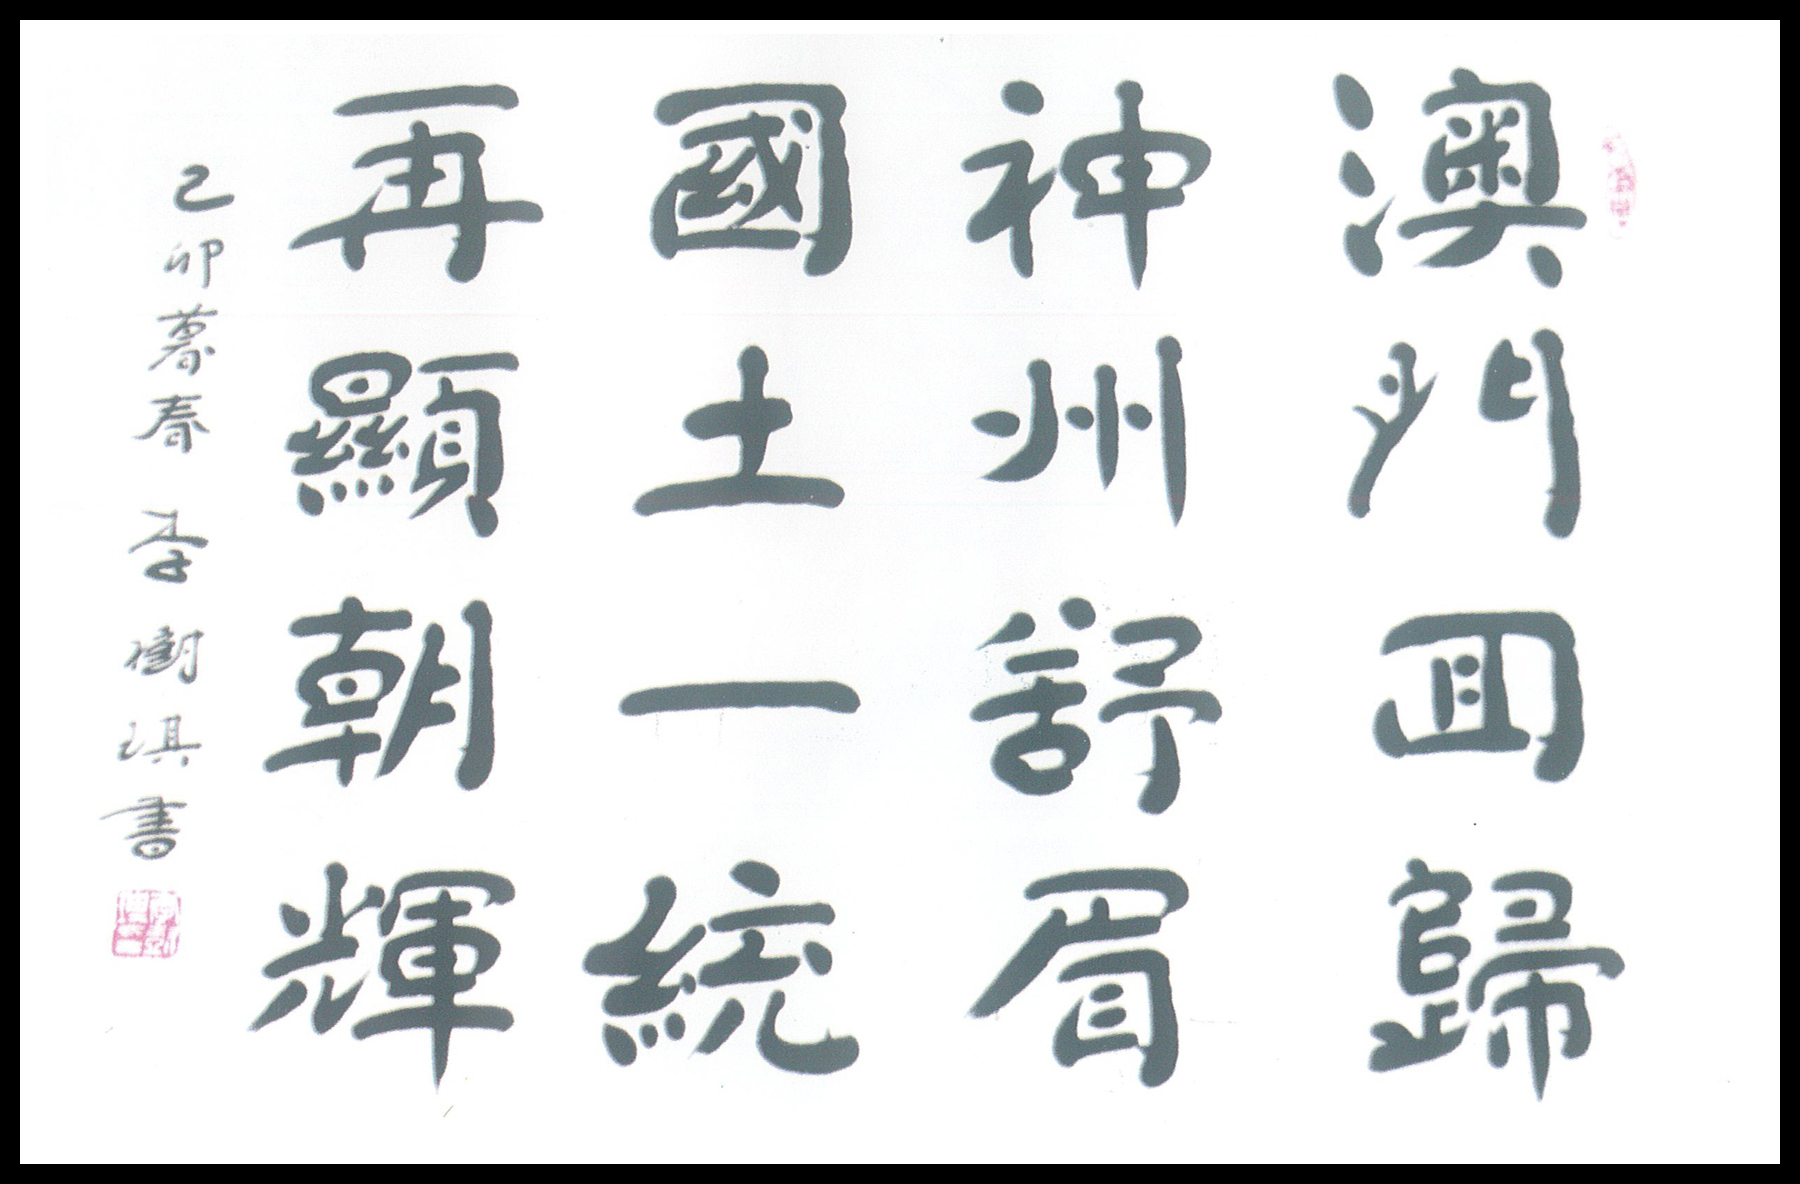 澳門囬歸
神州舒眉
國土一統
再顯朝輝
己卯暮春 李樹琪書